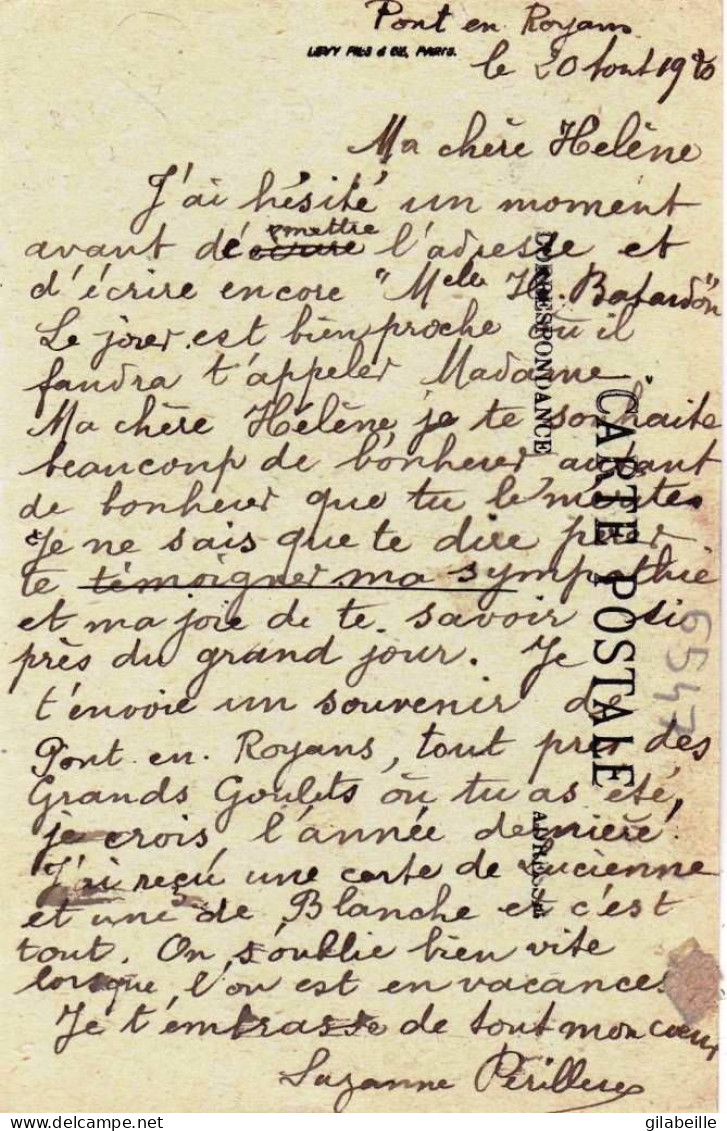 Pont en Royans
LEVY FILS & CIE, PARIS.
le 20 Aout 1920
Ma chère Helène
J'ai hésité un moment
avant de mettre l'adresse et
d'écrire encore "Melle H. Batardon"
Le jour est bien proche où il
faudra t'appeler "Madame"
Ma chère Hélène je te souhaite
beaucoup de bonheur autant
de bonheur que tu le mérites
Je ne sais que te dire pour
te témoigner ma sympathie
et ma joie de te savoir si
près du grand jour. Je
t'envoie un souvenir de
Pont en Royans, tout près des
Grands Goulets où tu as été,
je crois l'année dernière.
J'ai reçu une carte de Lucienne
et une de Blanche et c'est
tout. On s'oublie bien vite
lorsque l'on est en vacances
Je t'embrasse de tout mon cœur
Suzanne
CORRESPONDANCE
CARTE POSTALE
ADRESSE
6547
gilabeille